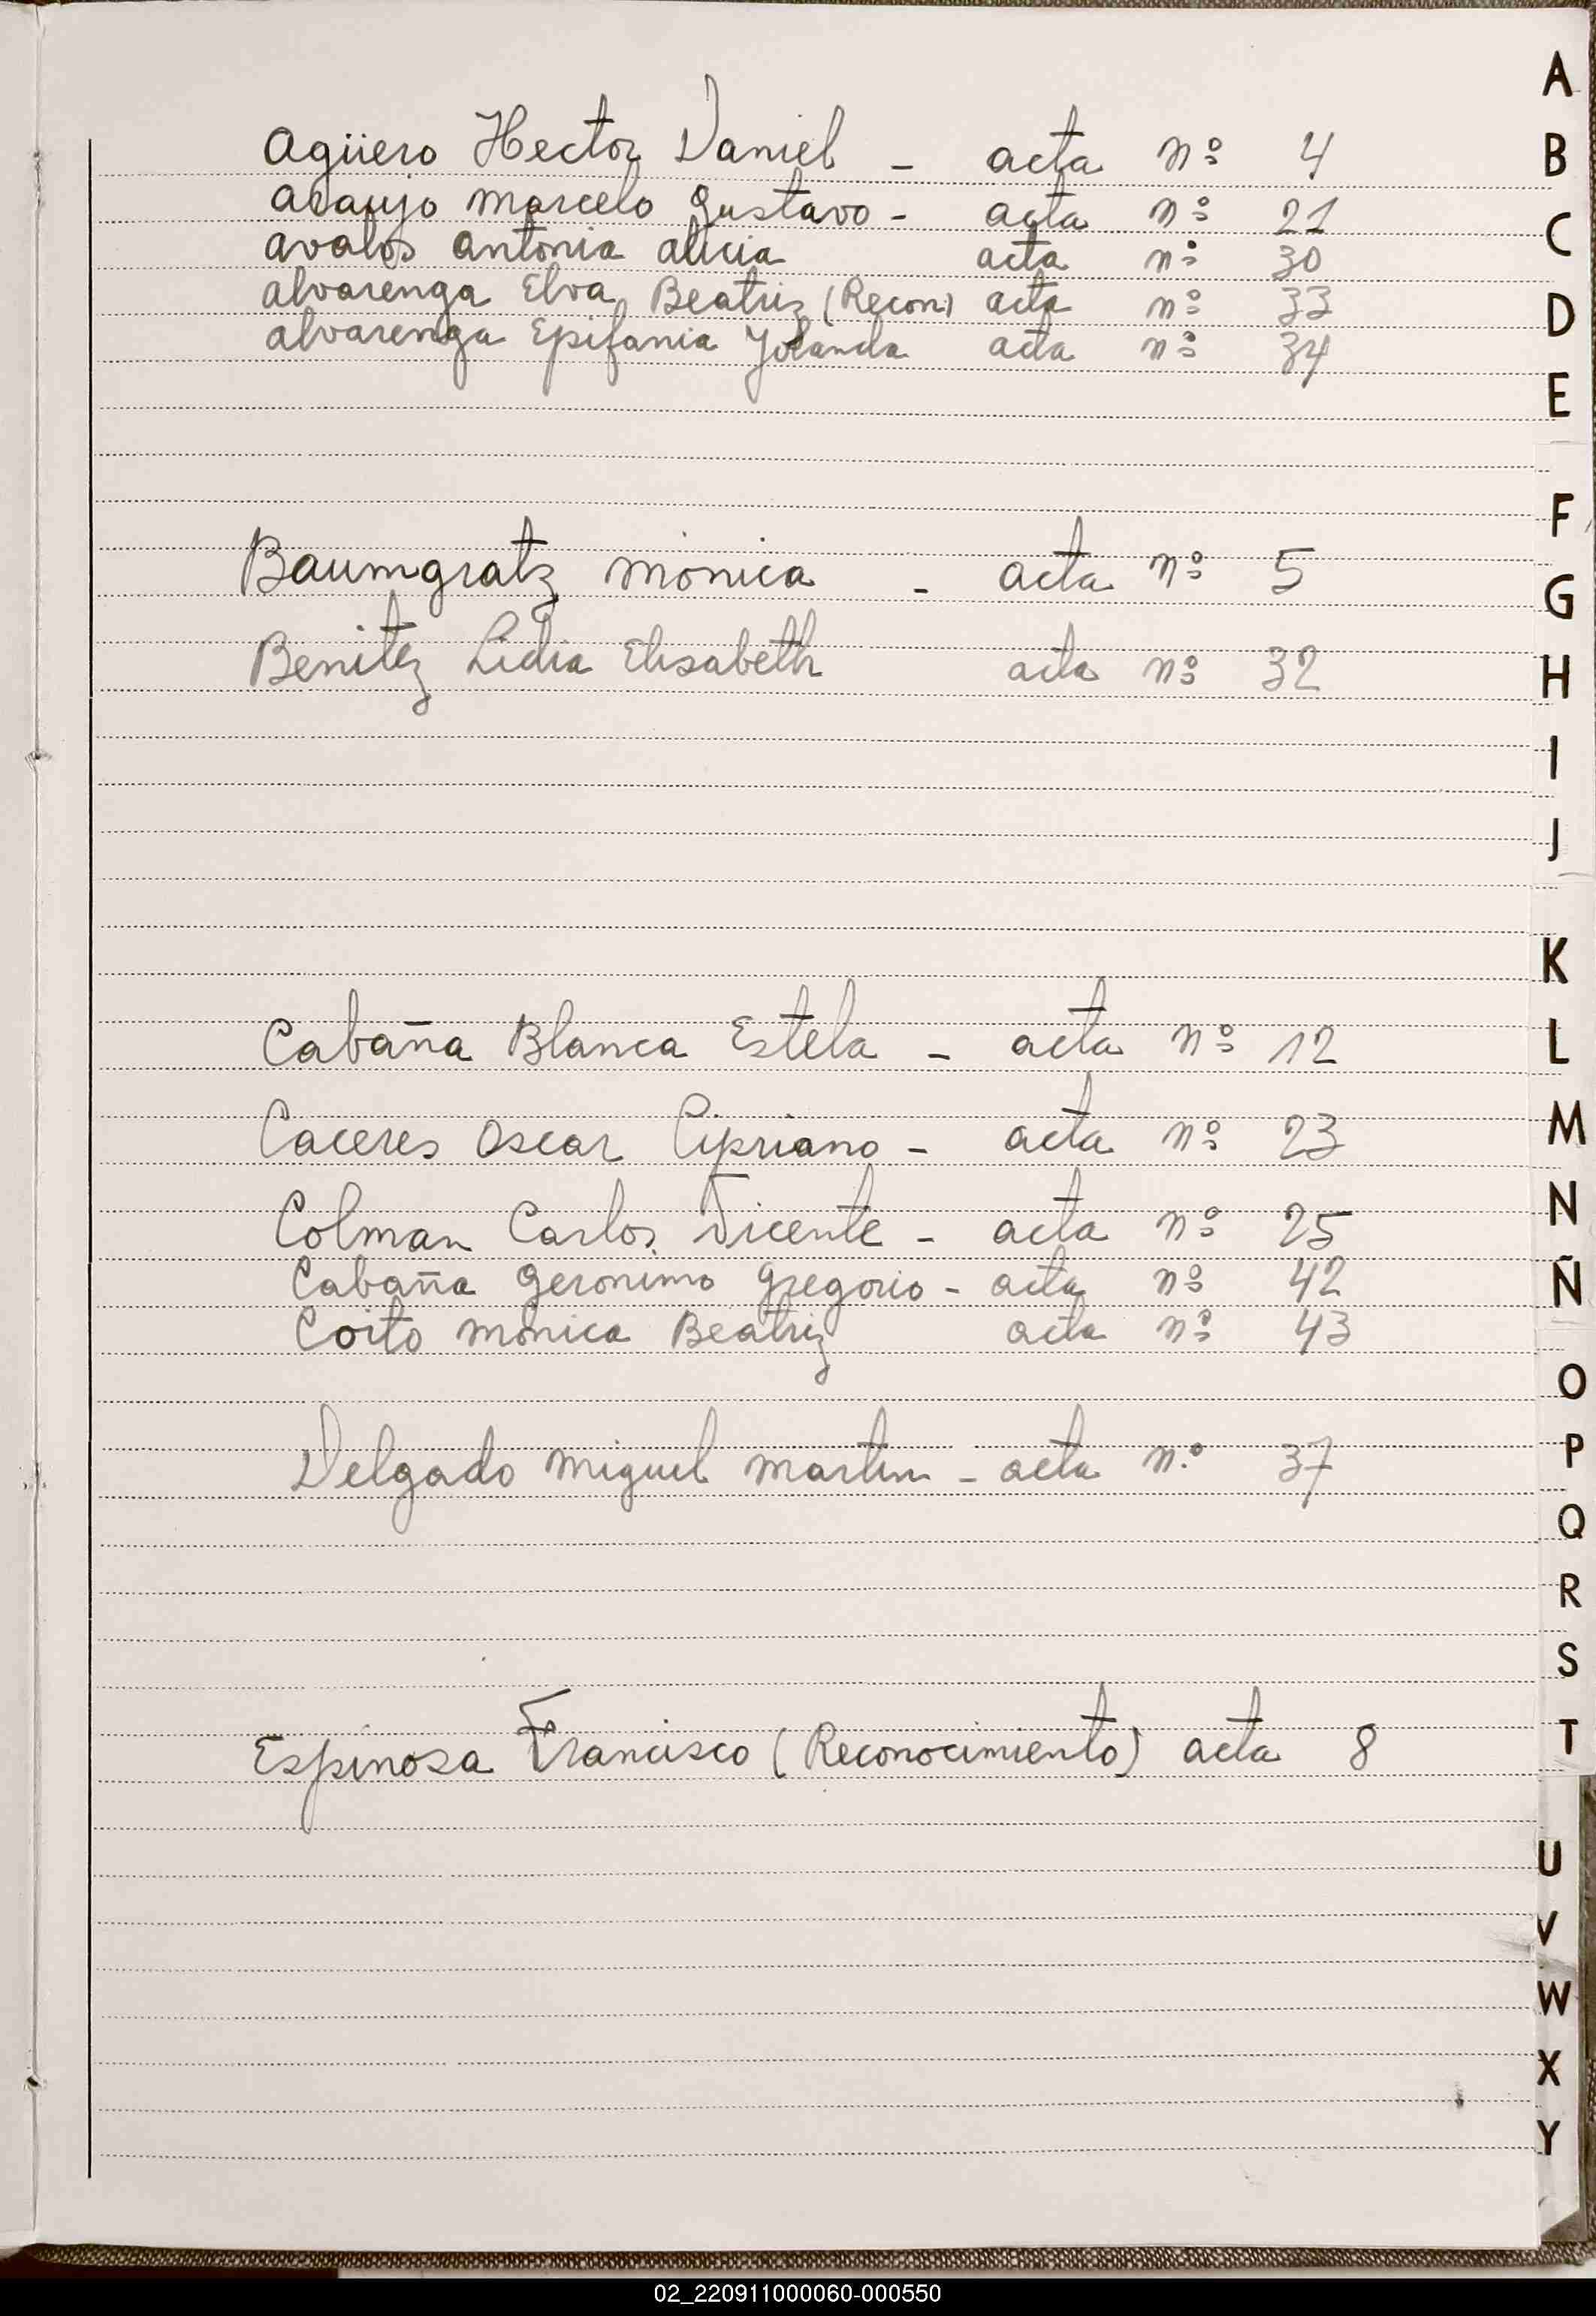 Agüero Hector Daniel - acta nº 4
Araujo Marcelo Gustavo - acta nº 21
Avalos Antonia Alicia acta nº 30
Alvarenga Elva Beatriz (Recon) acta nº 33
Alvarenga Epifania Yolanda acta nº 34
Baumgratz Mónica - acta nº 5
Benitez Lidia Elisabeth acta nº 32
Cabaña Blanca Estela - acta nº 12
Caceres Oscar Cipriano - acta nº 23
Colman Carlos Vicente - acta nº 25
Cabaña Geronimo Gregorio - acta nº 42
Coito Monica Beatriz acta nº 43
Delgado Miguel Martin - acta nº 37
Espinosa Francisco (Reconocimiento) acta 8
A
B
C
D
E
F
G
H
I
J
K
L
M
N
Ñ
O
P
Q
R
S
T
U
V
W
X
Y
02_220911000060-000550